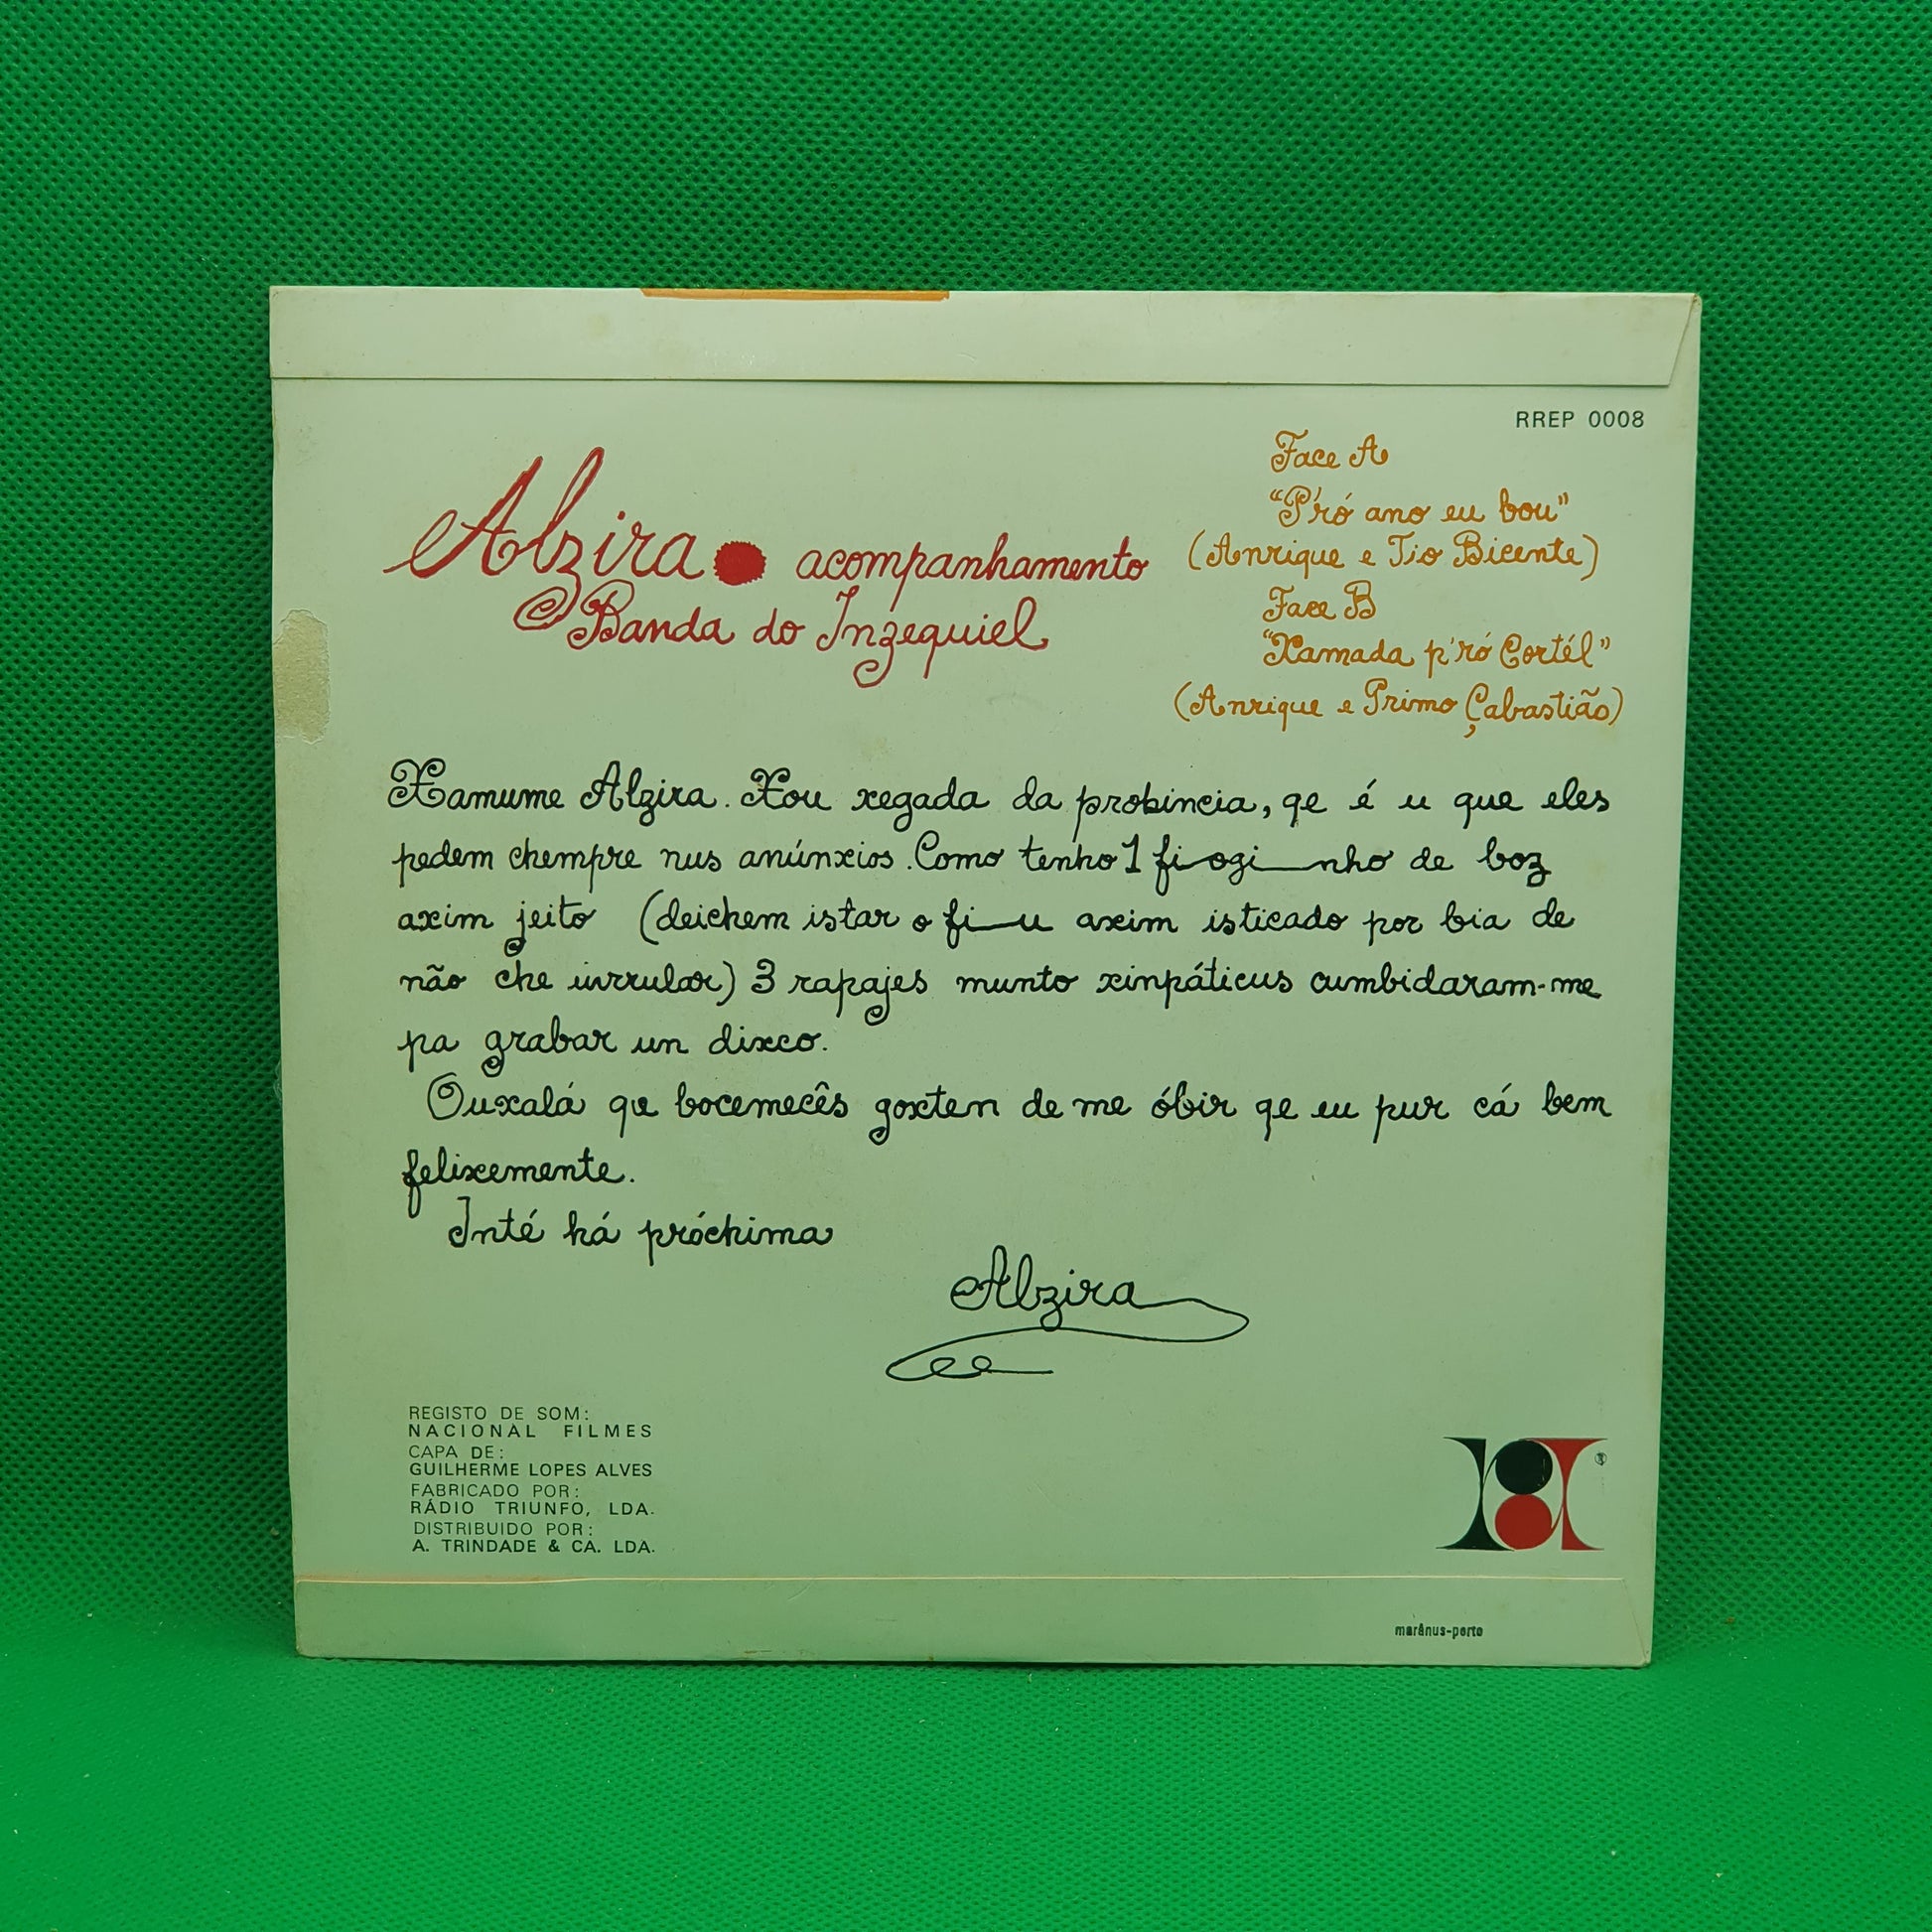 RREP 0008
Alzira acompanhamento
Banda do Inzequiel
Face A
"P'ró ano eu bou"
(Anrique e Tio Bicente)
Face B
"Xamada p'ró Cortél"
(Anrique e Primo Çabastião)
Xamume Alzira. Xou xegada da probincia, qe é u que eles
pedem chempre nus anúnxios. Como tenho 1 fiozinho de boz
axim jeito (deichem istar o fiu axim isticado por bia de
não che inrrular) 3 rapajes munto xinpáticus cumbidaram-me
pa grabar un dixco.
Ouxalá que bocemecês goxten de me óbir qe eu pur cá bem
felixemente.
Inté há próchima
Alzira
REGISTO DE SOM:
NACIONAL FILMES
CAPA DE:
GUILHERME LOPES ALVES
FABRICADO POR:
RÁDIO TRIUNFO, LDA.
DISTRIBUIDO POR:
A. TRINDADE & CA. LDA.
marânus-porto